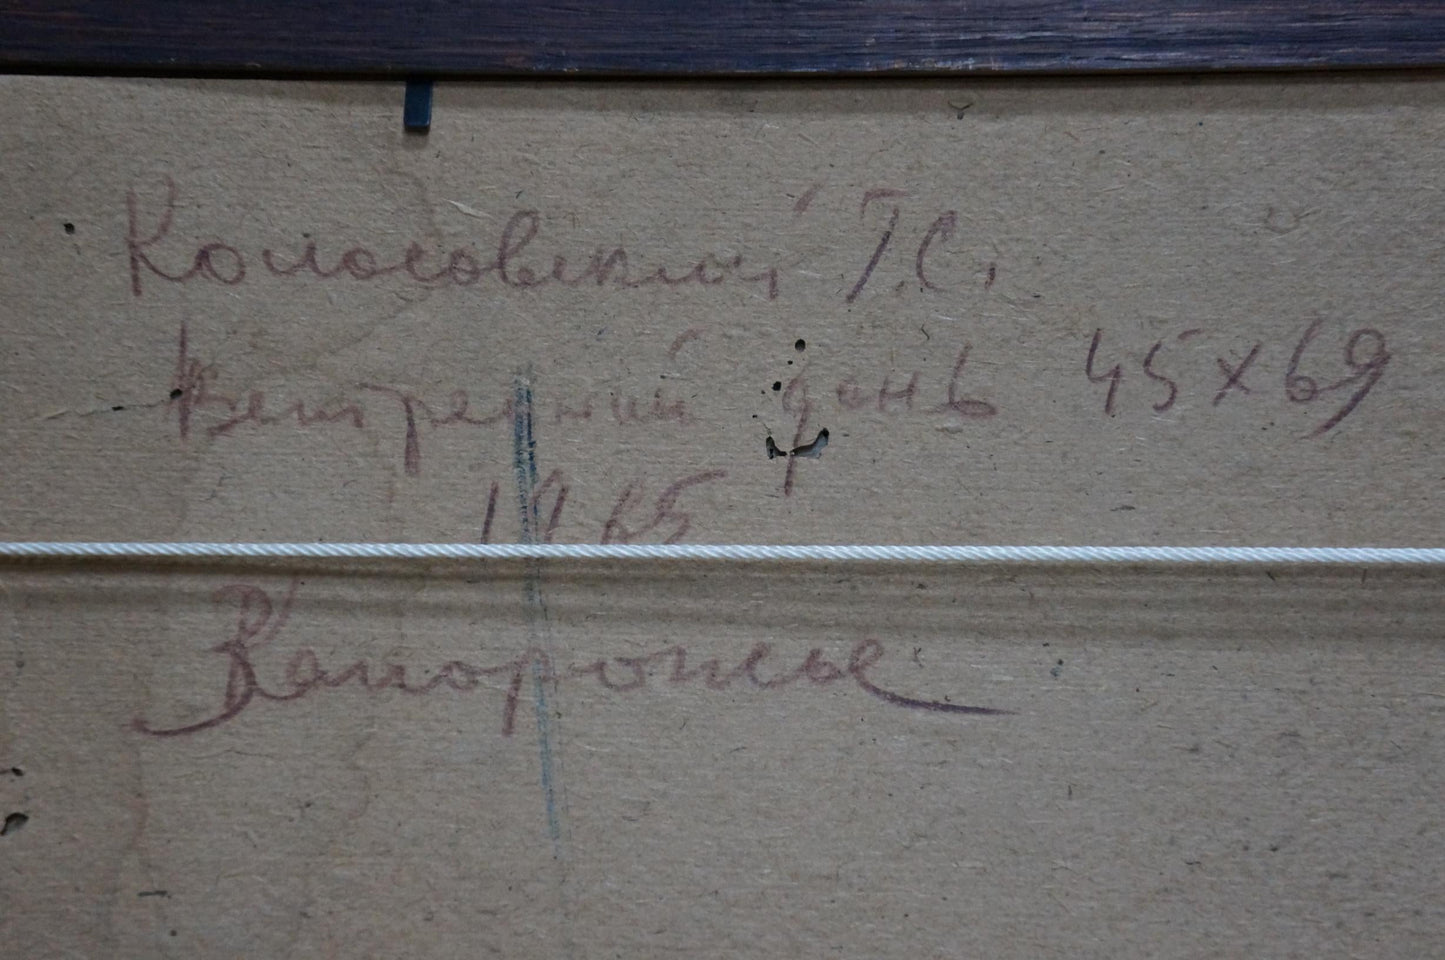 Колосовский Г.С.
Ветренный день 45х69
1965
Запорожье